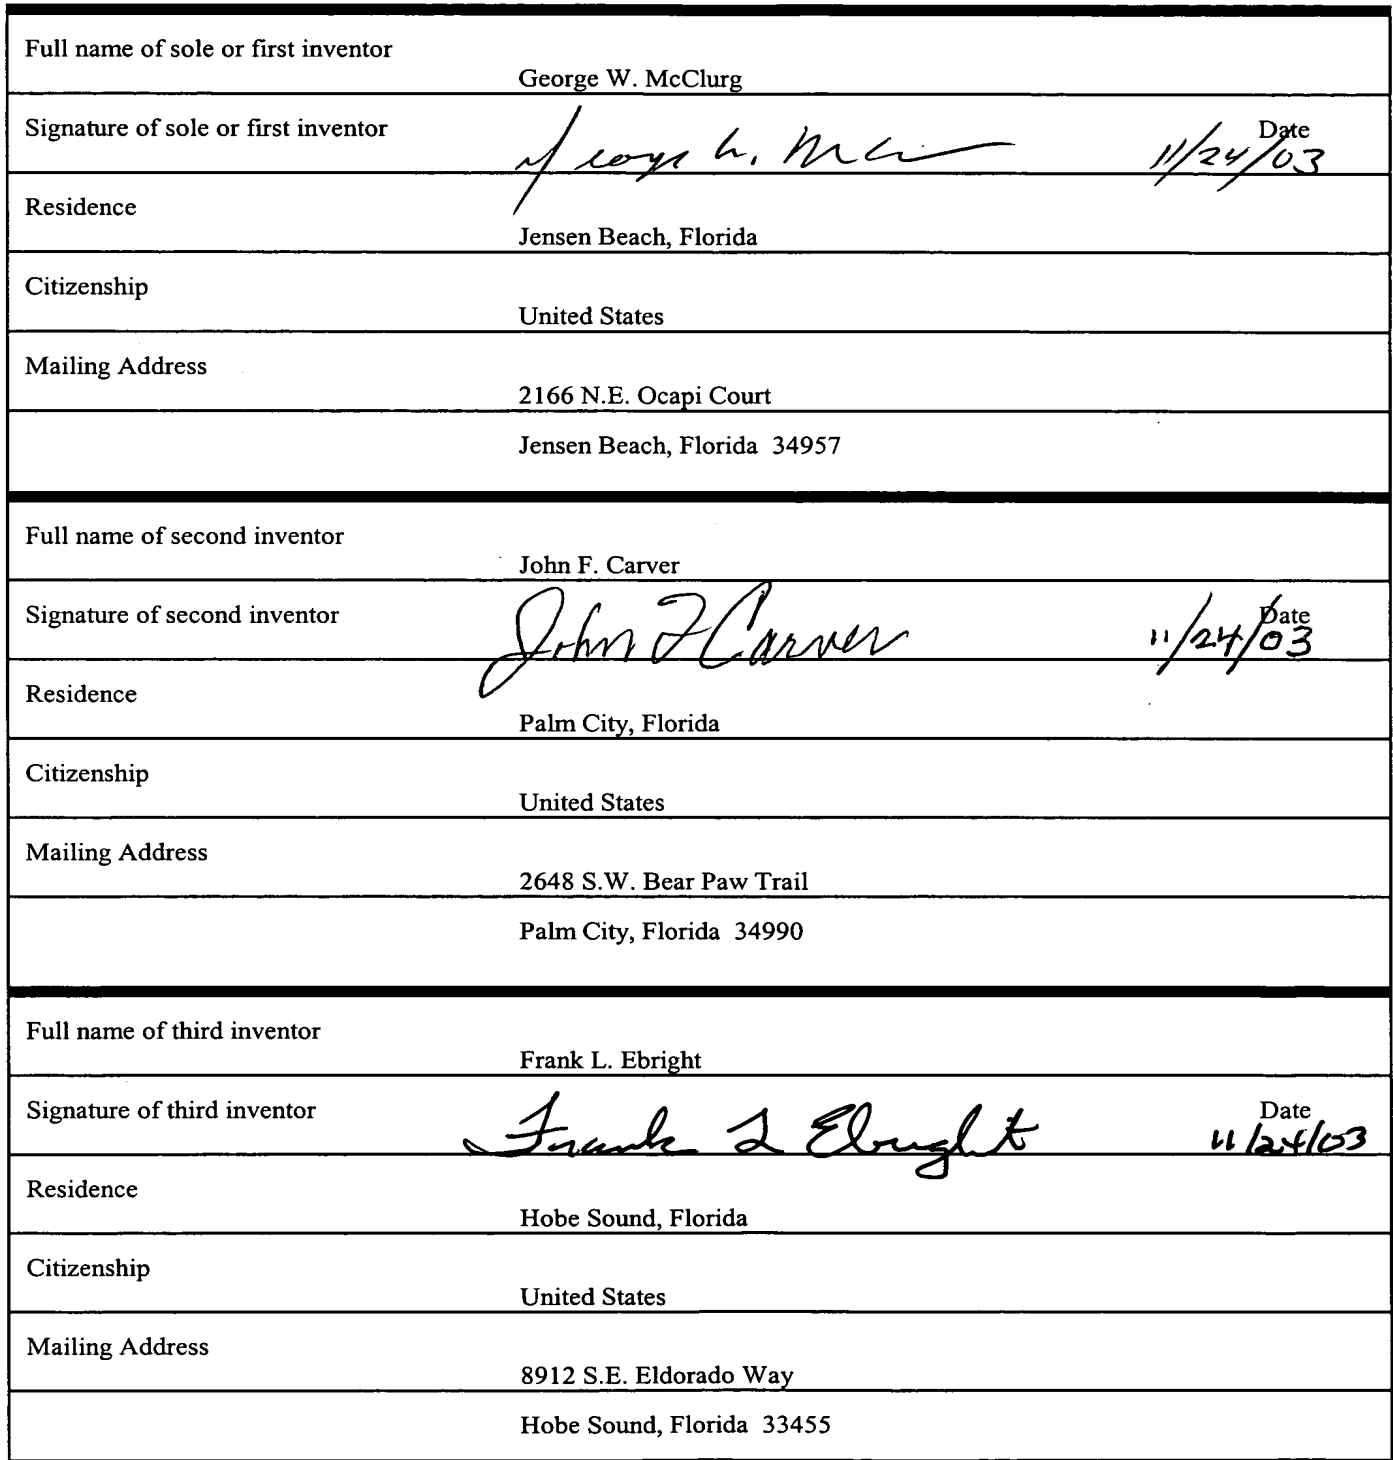 Full name of sole or first inventor
George W. McClurg
Signature of sole or first inventor
George W. McC
Date
11/24/03
Residence
Jensen Beach, Florida
Citizenship
United States
Mailing Address
2166 N.E. Ocapi Court
Jensen Beach, Florida 34957
Full name of second inventor
John F. Carver
Signature of second inventor
John F Carver
Date
11/24/03
Residence
Palm City, Florida
Citizenship
United States
Mailing Address
2648 S.W. Bear Paw Trail
Palm City, Florida 34990
Full name of third inventor
Frank L. Ebright
Signature of third inventor
Frank L Ebright
Date
11/24/03
Residence
Hobe Sound, Florida
Citizenship
United States
Mailing Address
8912 S.E. Eldorado Way
Hobe Sound, Florida 33455